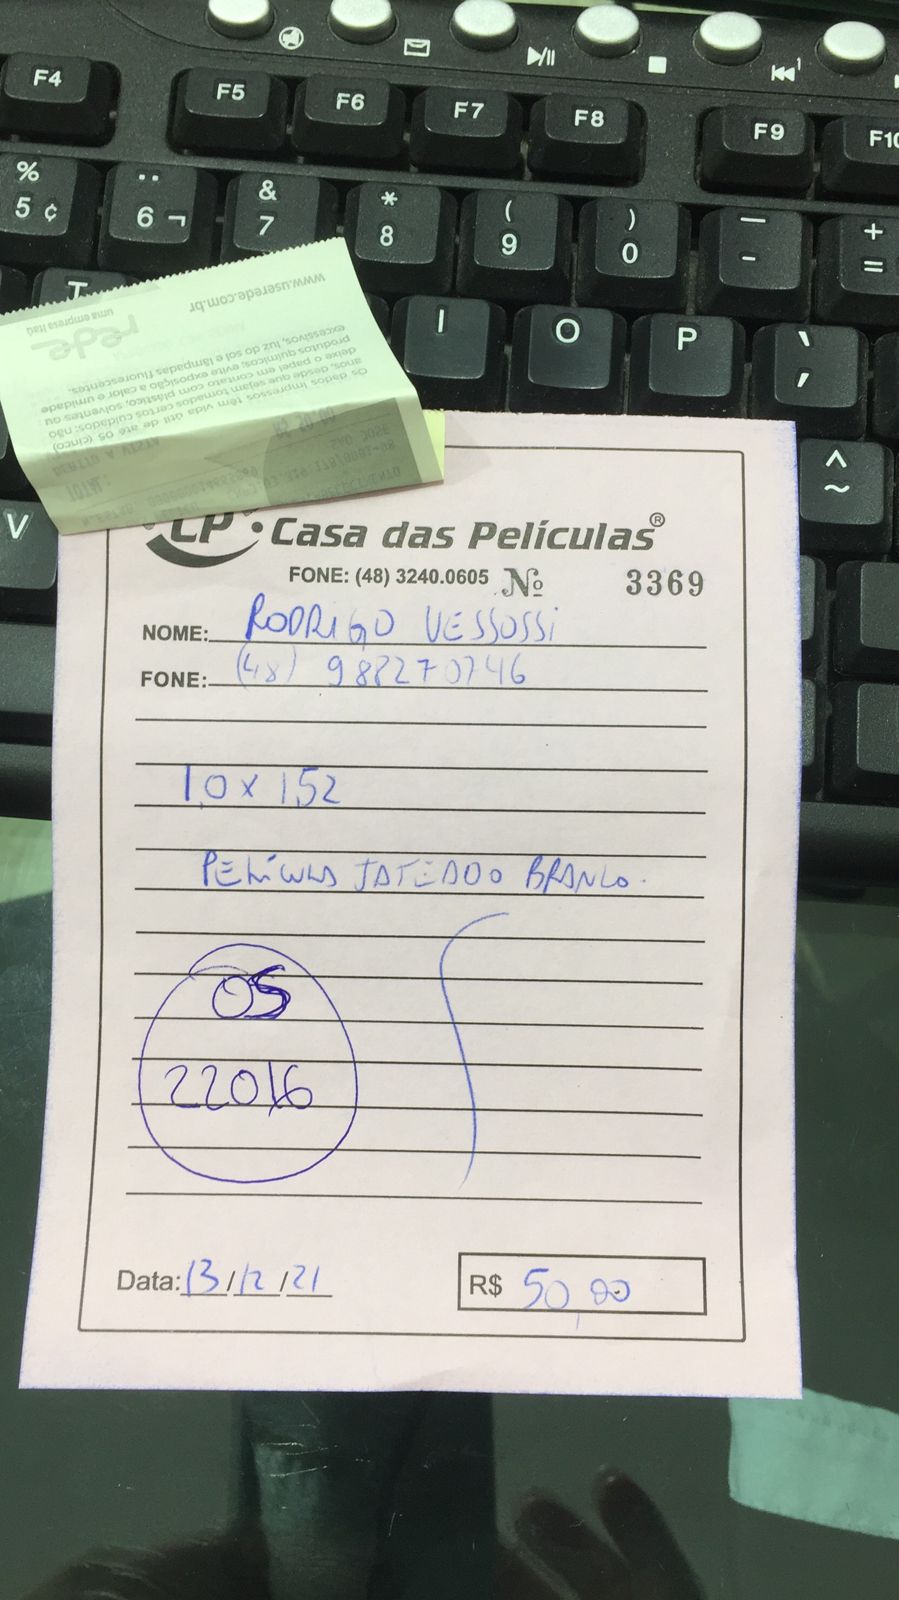 F4 F5 F6 F7 F8 F9 F10
% 5 ¢
¨ 6 ¬
& 7
* 8
( 9
) 0
— -
+ =
T I O P ` ´
^ ~
V
www.userede.com.br
rede
uma empresa Itaú
Os dados impressos têm vida útil de até 05 (cinco)
anos, desde que sejam tomados certos cuidados: não
deixe o papel em contato com plástico, solventes ou
produtos químicos, evite exposição a calor e umidade
excessivos, luz do sol e lâmpadas fluorescentes.
CP Casa das Películas®
FONE: (48) 3240.0605 Nº 3369
NOME: RODRIGO VESSOSSI
FONE: (48) 988270746
1,0 x 1,52
PELÍCULA JATEADO BRANCO.
OS
22016
Data: 13/12/21 R$ 50,00